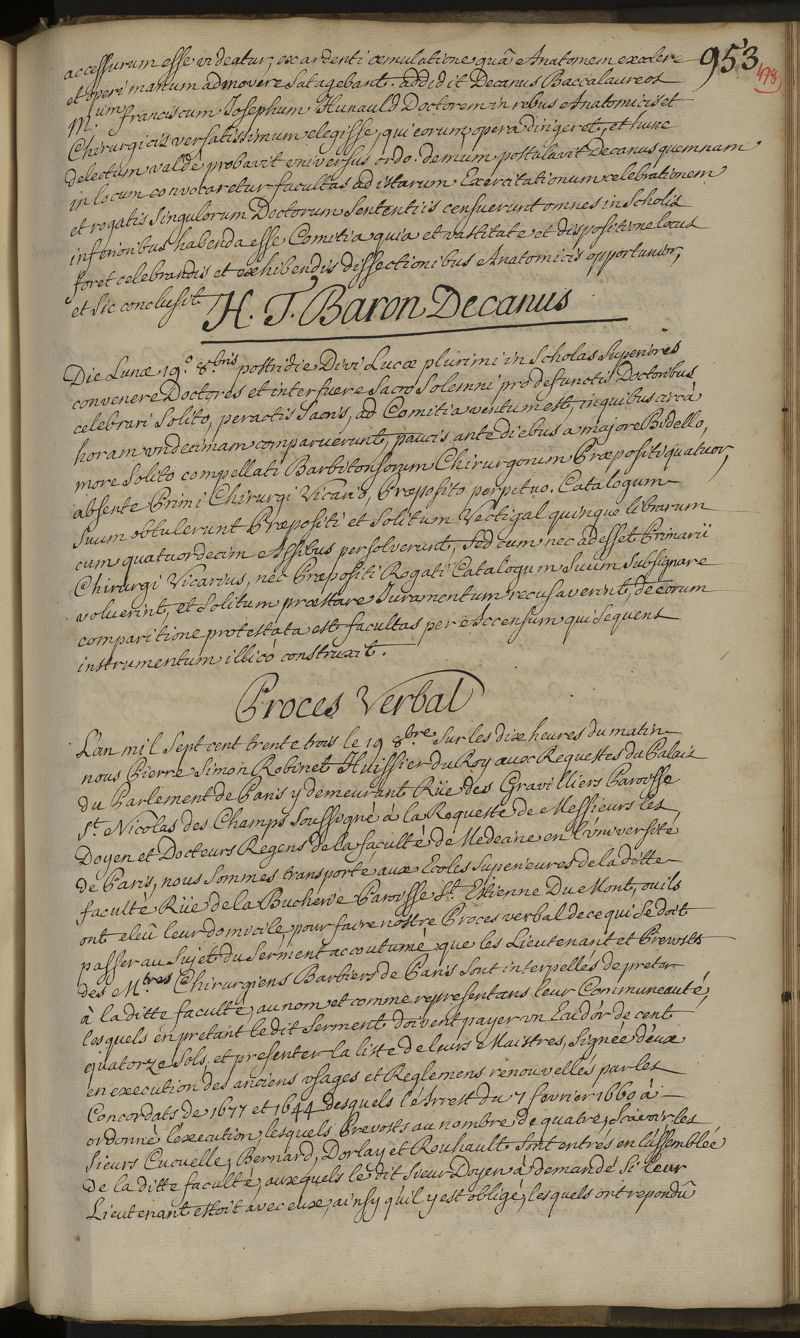 953
478
accessurum esse videatur; ex ardenti æmulatione quâ Anatomen excolere
et operi manum admovere satagebant. addidit Decanus Baccalaureos
M.um Franciscum Josephum Hunauld Doctorem in rebus Anatomicis et
Chirurgicis versatissimum elegisse, qui eorum opera dirigeret, et hunc
delectum valdè probavit universus ordo. demùm postulavit Decanus quemnam
in locum convocaretur facultas ad istarum Exercitationum celebrationem
et rogatis singulorum Doctorum Sententiis censuerunt omnes in Scholis
inferioribus habenda esse Comitia quia et vastitate et dispositione locus
foret celebrandis et exhibendis dissectionibus Anatomicis opportunior,
et sic conclusit.
H. T. Baron Decanus
Die Lunæ 19.º 8.bris postridie Divi Lucæ plurimi in Scholas Superiores
convenere Doctores et interfuere Sacro Solemni pro defunctis Doctoribus
celebrari Solito, peractis Sacris, ad Comitia ventum est, in quibus circà
horam undecimam comparuerunt, paucis ante diebus a majore Bidello,
more Solito compellati Barbitonsorum Chirurgorum Præpositi quatuor,
absente Primi Chirurgi Vicario, Præposito perpetuo. Catalogum
Suum obtulerunt Præpositi et Solitum Vectigal quinque librarum
cum quatuordecim Assibus persolverunt, Sed cum nec adesset Primarii
Chirurgi Vicarius, nec Præpositi Rogati Catalogum Suum Subsignare
voluerint, et Solitum præstare Juramentum recusaverint, de eorum
comparitione protestata est facultas per Accensum qui sequens
instrumentum illicò construxit.
Proces Verbal
L'an mil Sept cent trente trois le 19 8.bre Sur les dix heures du matin
nous Pierre Simon Robinet Huissier du Roy aux Requestes du Palais
du Parlement de Paris y demeurant Rüe des Gravilliers Paroisse
S.t Nicolas des Champs Soussigné à la Requeste de Messieurs les
Doyen et Docteurs Regens de la faculté de Medecine en l'Université
de Paris, nous Sommes transporté aux Ecoles Superieures de la ditte
faculté Rüe de la Bucherie Paroisse S.t Estienne Du Mont, ou ils
ont eleû leur domicile, pour faire nostre Proces verbal de ce qui Se doit
passer au Sujet du Serment accoutumé que les Lieutenant et Prevosts
des M.tres Chirurgiens Barbiers de Paris Sont interpellés de preter
à la ditte faculté, au nom et comme representans leur Communeauté,
lesquels en pretant le dit Serment doivent payer un Ecu d'or de cent
quatorze Sols, et presenter la liste de leurs Maistres, Signée d'eux
en execution des anciens usages et Reglemens renouvellés par les
Concordats de 1577 et 1644 desquels l'Arrest du 7 fevrier 1660 à
ordonné l'execution, lesquels Prevosts au nombre de quatre, Scavoir les
Sieurs Cucuelle, Bernard, Dorlay et Rouhault Sont entrés en l'assemblée
De la ditte faculté, auxquels le dit Sieur Doyen à demandé Si leur
Lieutenant estoit avec eux, ainsy qu'il y est obligé, lesquels ont repondû